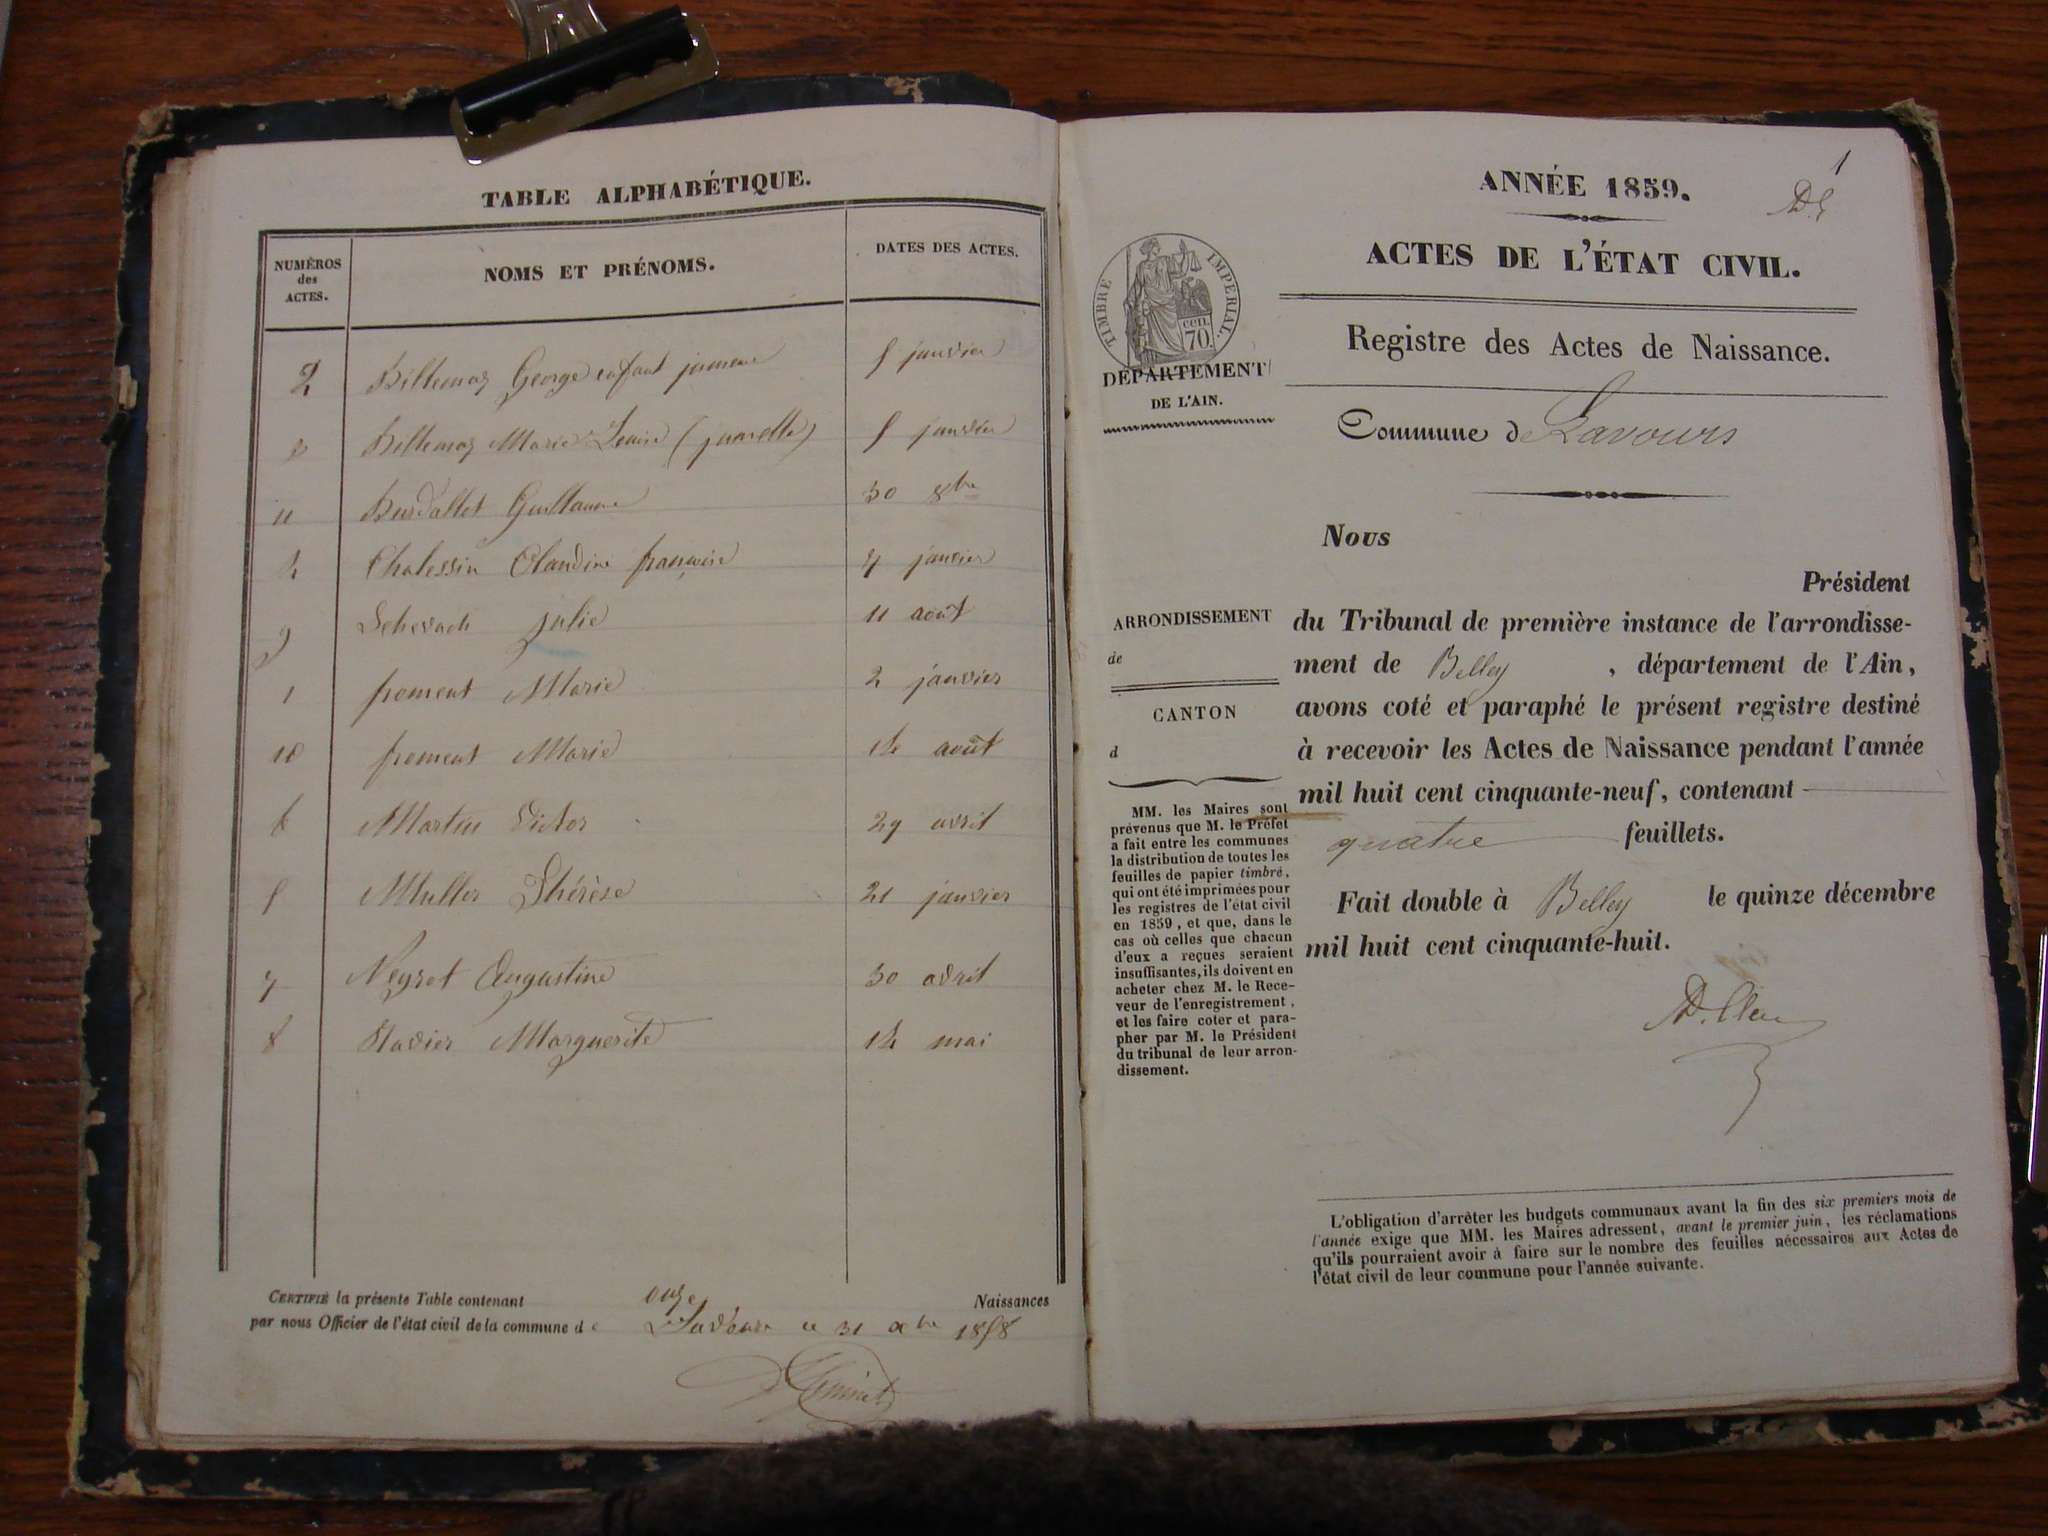 TABLE ALPHABÉTIQUE.
NUMÉROS
des
ACTES.
NOMS ET PRÉNOMS.
DATES DES ACTES.
Billemaz George enfant jumeau 5 janvier
Billemaz Marie Louise (jumelle) 5 janvier
11 Burdallet Guillaume 30 8bre
Chalessin Clandine françoise 4 janvier
9 julie 11 août
1 froment Marie 2 janvier
10 froment Marie août
6 Martin Victor 29 avril
5 Muller Thérèse 21 janvier
7 Neyret Augustine 30 avril
8 Marguerite mai
CERTIFIÉ la présente Table contenant onze Naissances
par nous Officier de l'état civil de la commune de Lavours ce 31 xbre 1858
1
ANNÉE 1859.
ACTES DE L'ÉTAT CIVIL.
TIMBRE IMPERIAL.
cen.
70.
DÉPARTEMENT
DE L'AIN.
Registre des Actes de Naissance.
Commune de Lavours
Nous
Président
du Tribunal de première instance de l'arrondisse-
ment de Belley , département de l'Ain,
avons coté et paraphé le présent registre destiné
à recevoir les Actes de Naissance pendant l'année
mil huit cent cinquante-neuf, contenant
quatre feuillets.
Fait double à Belley le quinze décembre
mil huit cent cinquante-huit.
ARRONDISSEMENT
de
CANTON
d
MM. les Maires sont
prévenus que M. le Préfet
a fait entre les communes
la distribution de toutes les
feuilles de papier timbré,
qui ont été imprimées pour
les registres de l'état civil
en 1859, et que, dans le
cas où celles que chacun
d'eux a reçues seraient
insuffisantes, ils doivent en
acheter chez M. le Rece-
veur de l'enregistrement,
et les faire coter et para-
pher par M. le Président
du tribunal de leur arron-
dissement.
L'obligation d'arrêter les budgets communaux avant la fin des six premiers mois de
l'année exige que MM. les Maires adressent, avant le premier juin, les réclamations
qu'ils pourraient avoir à faire sur le nombre des feuilles nécessaires aux Actes de
l'état civil de leur commune pour l'année suivante.